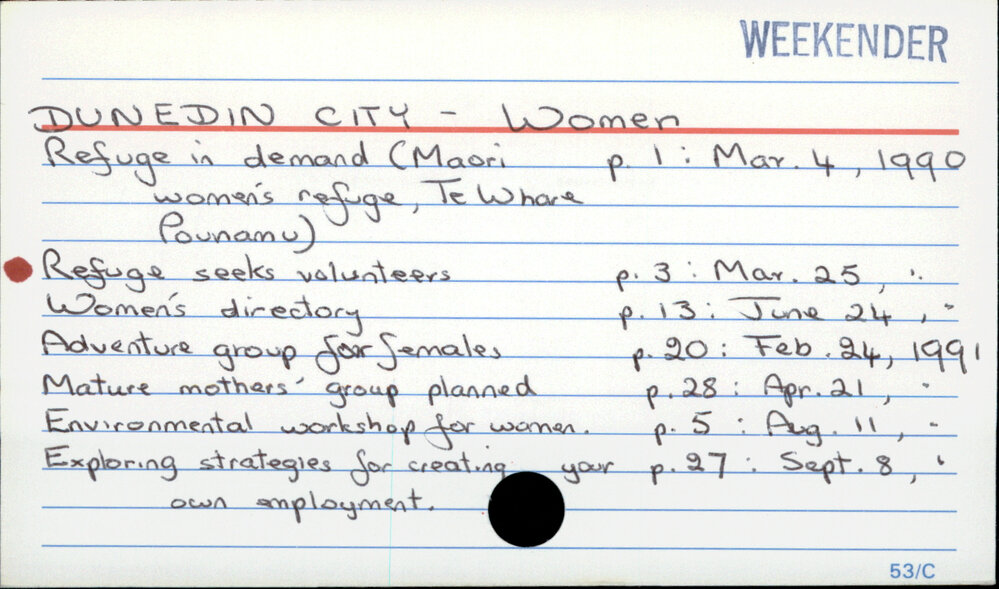 WEEKENDER
DUNEDIN CITY - Women
Refuge in demand (Maori p. 1 : Mar. 4, 1990
women's refuge, Te Whare
Pounamu)
Refuge seeks volunteers p. 3 : Mar. 25, "
Women's directory p. 13 : June 24, "
Adventure group for females p. 20 : Feb. 24, 1991
Mature mothers' group planned p. 28 : Apr. 21, "
Environmental workshop for women. p. 5 : Aug. 11, "
Exploring strategies for creating your p. 27 : Sept. 8, "
own employment.
53/C